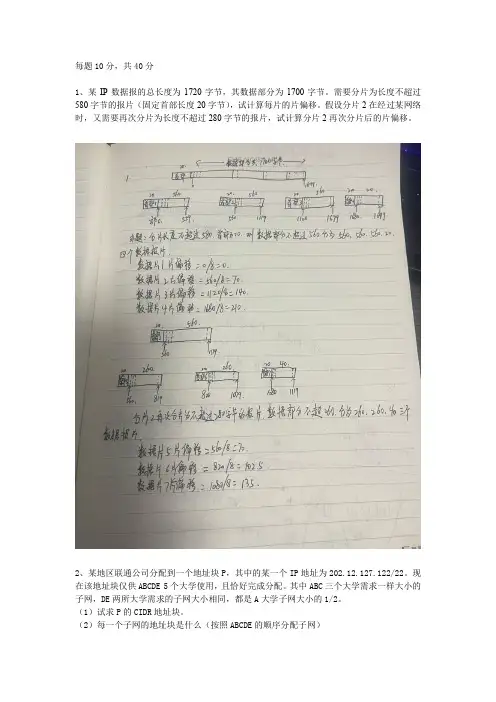 每题10分，共40分
1、某 IP 数据报的总长度为 1720 字节，其数据部分为 1700 字节。需要分片为长度不超过
580 字节的报片（固定首部长度 20 字节），试计算每片的片偏移。假设分片 2 在经过某网络
时，又需要再次分片为长度不超过 280 字节的报片，试计算分片 2 再次分片后的片偏移。
数据部分共1700字节
20
1.
首部
20 560 20 560 20 560 20 20
559 560 1119 1120 1679 1680 1699
分片长度不超过580，首部=20，则数据部分不超过560，分为560，560，560，20
四个数据报片
数据片1片偏移=0/8=0.
数据片2片偏移=560/8=70.
数据片3片偏移=1120/8=140.
数据片4片偏移=1680/8=210.
20 560
560 1119
20 260 20 260 20 40
560 819 820 1079 1080 1119
分片2再次分片不超过280字节的报片，数据部分不超260，分为260，260，40 三个
数据报片
数据片5片偏移=560/8=70.
数据片6片偏移=820/8=102.5
数据片7片偏移=1080/8=135.
2、某地区联通公司分配到一个地址块 P，其中的某一个 IP 地址为 202.12.127.122/22。现
在该地址块仅供 ABCDE 5 个大学使用，且恰好完成分配。其中 ABC 三个大学需求一样大小的
子网，DE 两所大学需求的子网大小相同，都是 A 大学子网大小的 1/2。
（1）试求 P 的 CIDR 地址块。
（2）每一个子网的地址块是什么（按照 ABCDE 的顺序分配子网）